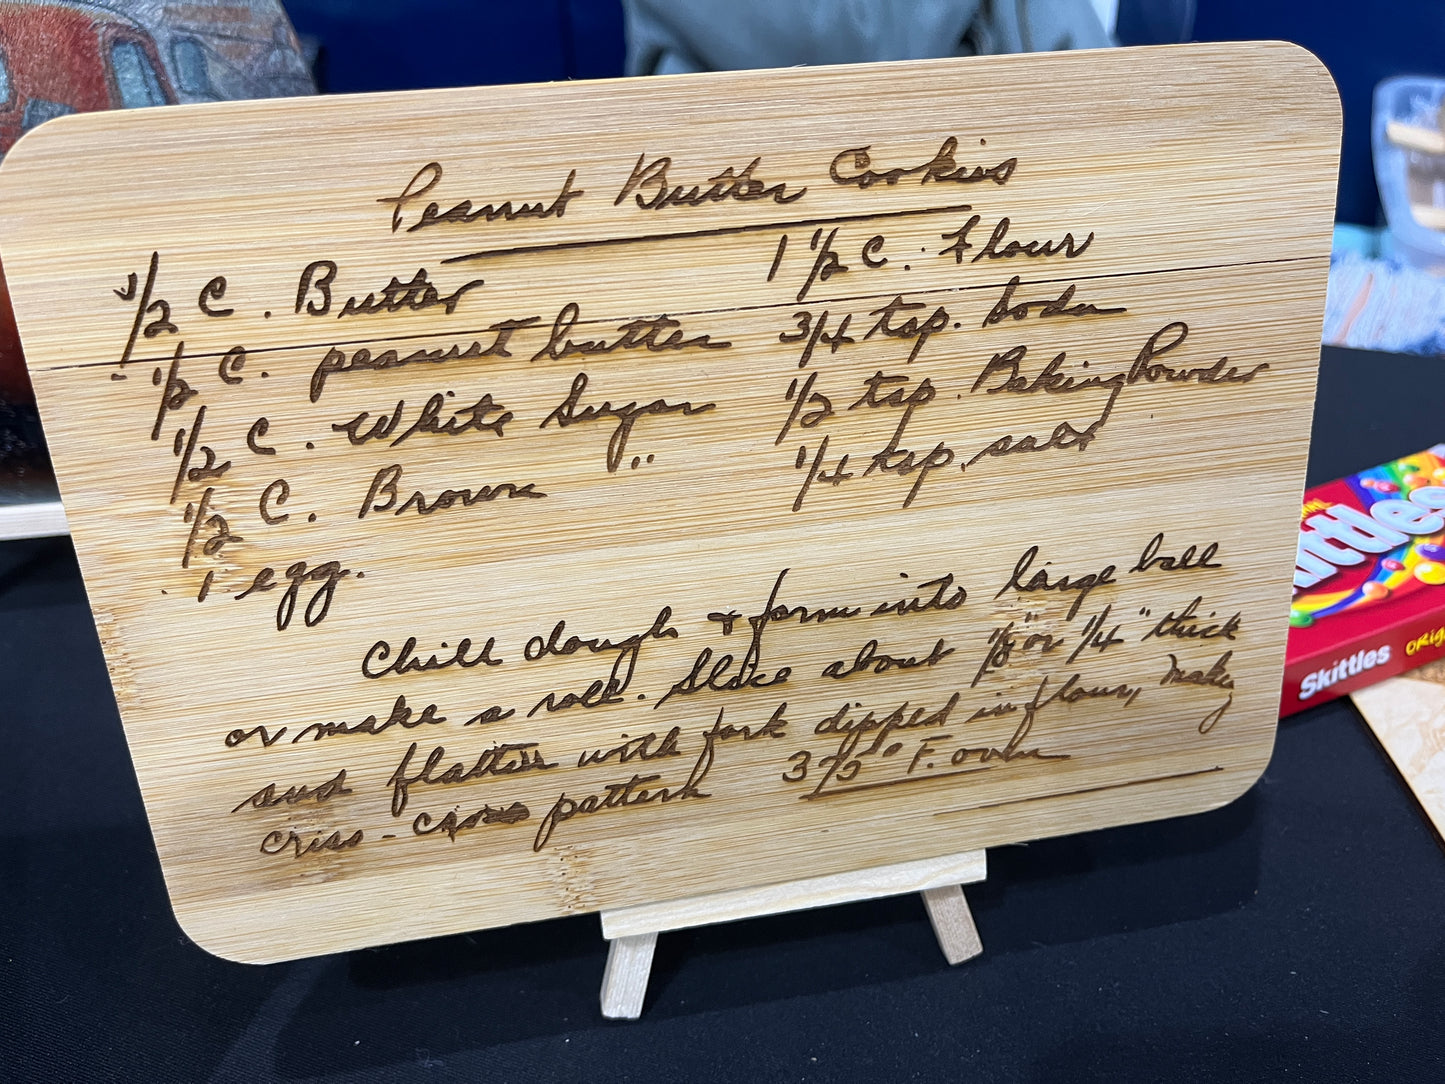 Peanut Butter Cookies
1/2 C. Butter
1/2 C. peanut butter
1/2 C. White Sugar
1/2 C. Brown "
1 egg.
1 1/2 C. Flour
3/4 tsp. Soda
1/2 tsp. Baking Powder
1/4 tsp. salt
Chill dough + form into large ball
or make a roll. Slice about 1/8" or 1/4" thick
and flatten with fork dipped in flour, making
criss-cross pattern 375° F. oven
Skittles
Skittles